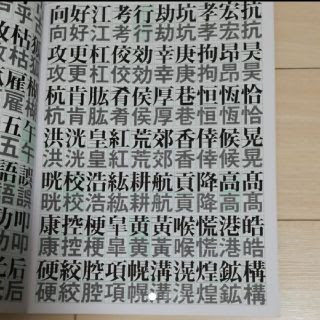 向好江考行劫坑孝宏抗
向好江考行劫坑孝宏抗
攻更杠効幸拘昂昊
攻更杠効幸拘昂昊
杭肯肱肴侯厚巷恒恆恰
杭肯肱肴侯厚巷恒恆恰
洪洸皇紅荒郊香倖候晃
洪洸皇紅荒郊香倖候晃
晄校浩紘耕航貢降高髙
晄校浩紘耕航貢降高髙
康控梗皐黄黃喉慌港皓
康控梗皐黄黃喉慌港皓
硬絞腔項幌溝滉煌鉱構
硬絞腔項幌溝滉煌鉱構
乎
枯
雇
雇
五午
五午
語誤
語誤
叩
叩
后
后